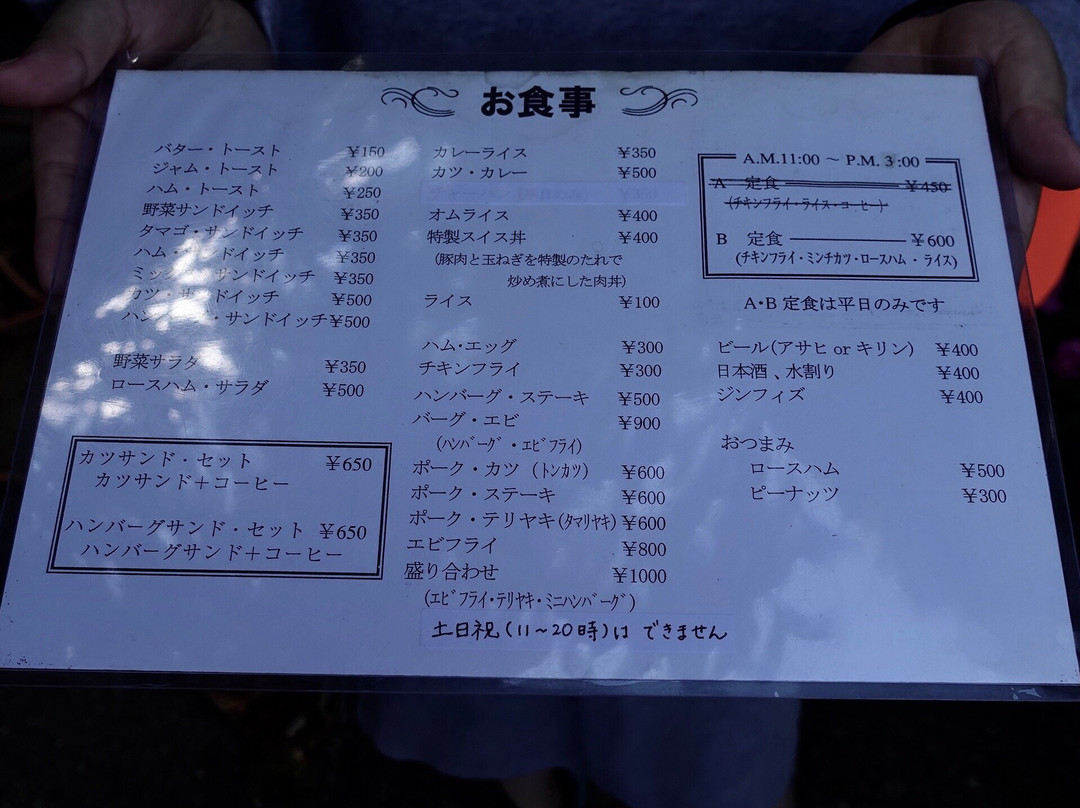 お食事
バター・トースト ¥150
ジャム・トースト ¥200
ハム・トースト ¥250
野菜サンドイッチ ¥350
タマゴ・サンドイッチ ¥350
ハム・サンドイッチ ¥350
ミックス・サンドイッチ ¥350
カツ・サンドイッチ ¥500
ハンバーグ・サンドイッチ ¥500
野菜サラダ ¥350
ロースハム・サラダ ¥500
カツサンド・セット ¥650
カツサンド+コーヒー
ハンバーグサンド・セット ¥650
ハンバーグサンド+コーヒー
カレーライス ¥350
カツ・カレー ¥500
オムライス ¥400
特製スイス丼 ¥400
(豚肉と玉ねぎを特製のたれで
炒め煮にした肉丼)
ライス ¥100
ハム・エッグ ¥300
チキンフライ ¥300
ハンバーグ・ステーキ ¥500
バーグ・エビ ¥900
(ハンバーグ・エビフライ)
ポーク・カツ (トンカツ) ¥600
ポーク・ステーキ ¥600
ポーク・テリヤキ(タマリヤキ) ¥600
エビフライ ¥800
盛り合わせ ¥1000
(エビフライ・テリヤキ・ミニハンバーグ)
土日祝(11~20時)は できません
A.M.11:00 ~ P.M. 3:00
A 定食 ¥450
(チキンフライ・ライス・コーヒー)
B 定食 ¥600
(チキンフライ・ミンチカツ・ロースハム・ライス)
A・B 定食は平日のみです
ビール(アサヒ or キリン) ¥400
日本酒、水割り ¥400
ジンフィズ ¥400
おつまみ
ロースハム ¥500
ピーナッツ ¥300